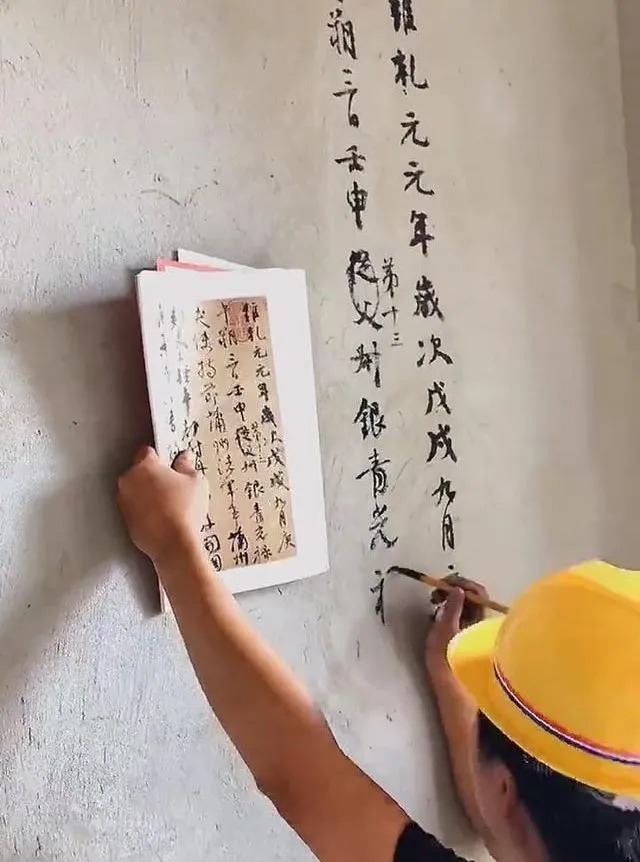 維乾元元年歲次戊戌九月
朔三日壬申從父叔銀青光
第十三
維乾元元年歲次戊戌九月庚
午朔三日壬申從父叔銀青光祿
第十三
夫使持節蒲州諸軍事蒲州